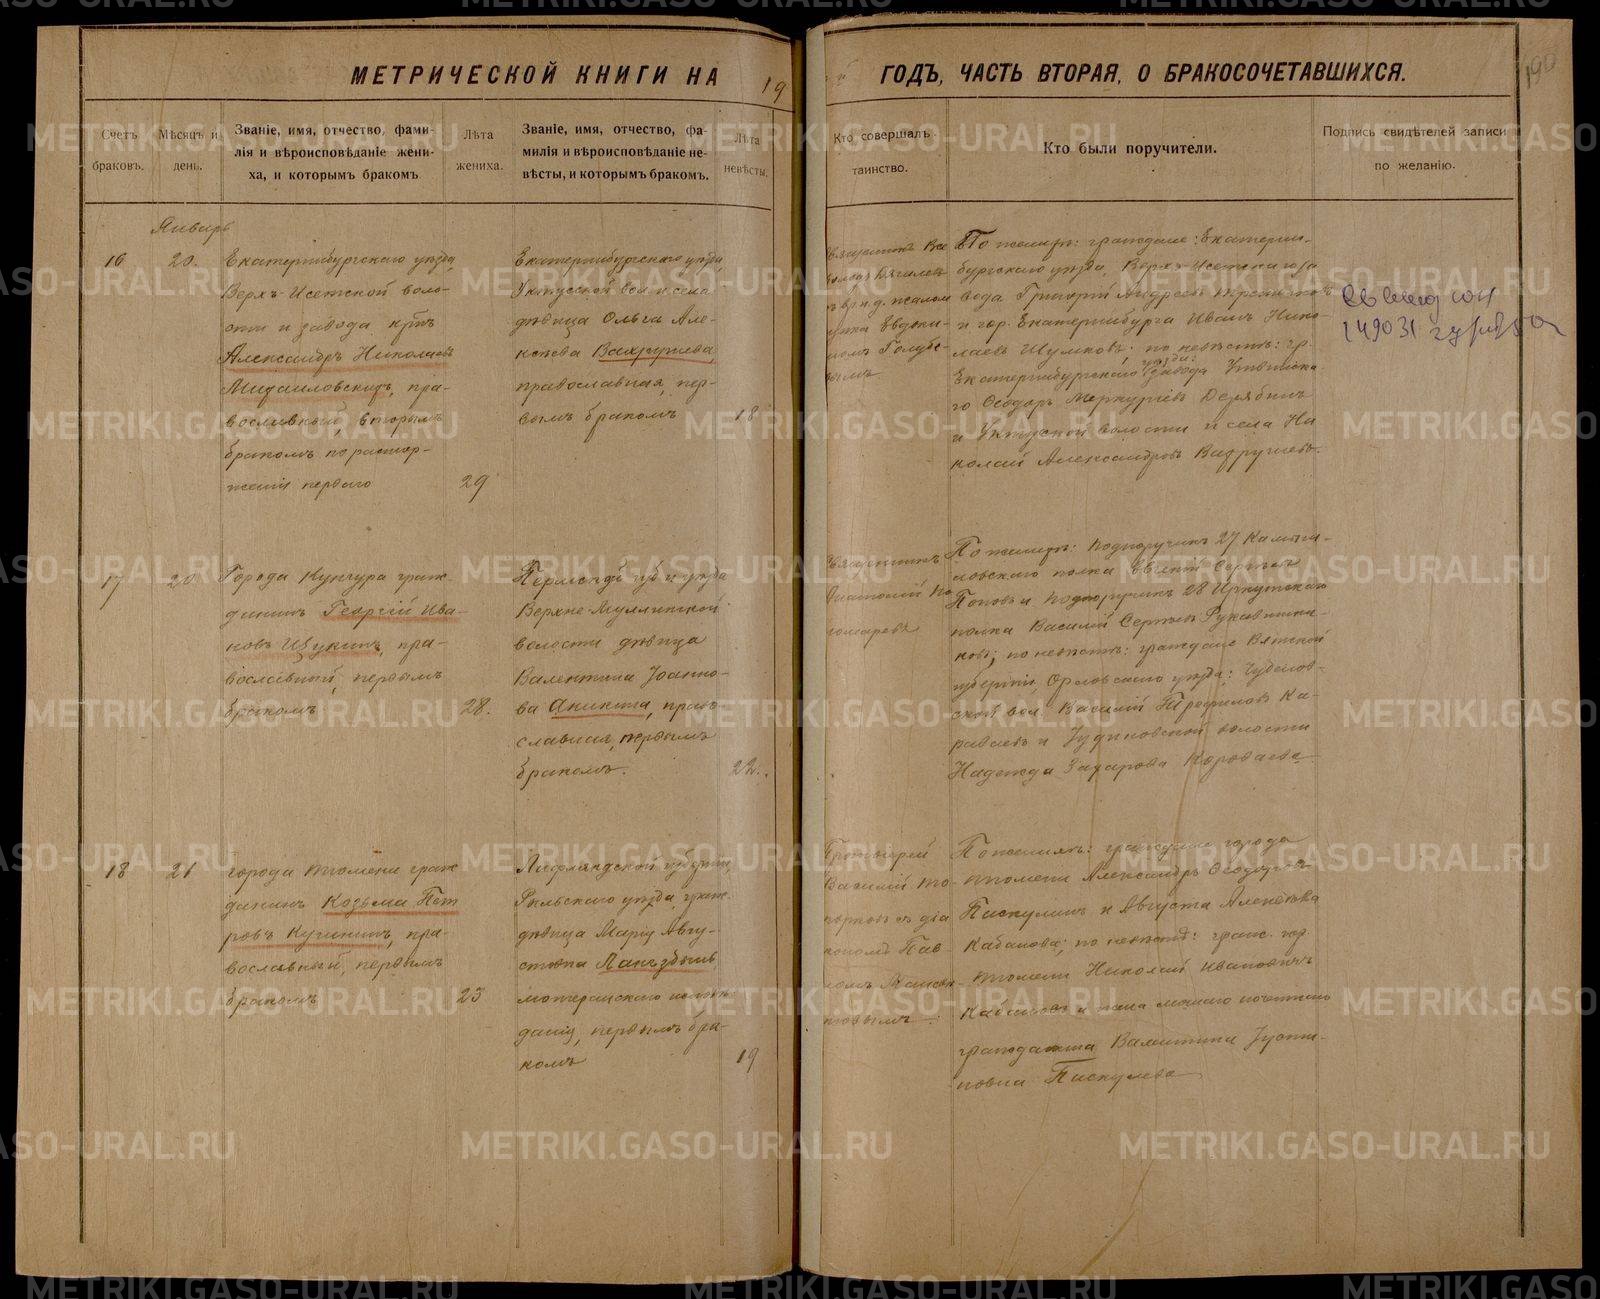 МЕТРИЧЕСКОЙ КНИГИ НА 19
ГОДЪ, ЧАСТЬ ВТОРАЯ, О БРАКОСОЧЕТАВШИХСЯ.
190
Счетъ браковъ.
Мѣсяцъ и день.
Званіе, имя, отчество, фами-
лія и вѣроисповѣданіе жени-
ха, и которымъ бракомъ
Лѣта жениха.
Званіе, имя, отчество, фа-
милія и вѣроисповѣданіе не-
вѣсты, и которымъ бракомъ.
Лѣта невѣсты.
Кто совершалъ таинство.
Кто были поручители.
Подпись свидѣтелей записи по желанію.
Январь
16
20.
Екатеринбургскаго уѣзда,
Верхъ-Исетской воло-
сти и завода
Александръ Николаевъ
Михаиловскихъ, пра-
вославный, вторымъ
бракомъ по растор-
женіи перваго
29
Екатеринбургскаго уѣзда,
Уктусской вол. и села
дѣвица Ольга Але-
ксѣева Вахрушева,
православная, пер-
вымъ бракомъ
18
По женихѣ: граждане: Екатерин-
бургскаго уѣзда, Верхъ-Исетскаго за
вода Григорій Андреевъ
и гор. Екатеринбурга Иванъ Нико-
лаевъ Шумковъ; по невѣстѣ: гр.
Екатеринбургскаго уѣзда: завода Уткинска
го Ѳеодоръ Меркурьевъ Дерябинъ
и Уктусской волости и села Ни
колай Александровъ Вахрушевъ.
149031
17
20
Города Кунгура граж-
данинъ Георгій Ива-
новъ Щукинъ, пра-
вославный, первымъ
бракомъ
28.
Пермской губ. и уѣзда
Верхне-Муллинской
волости дѣвица
Валентина Іоанно-
ва Аникина, право-
славная, первымъ
бракомъ.
22.
Священникъ
Анатолій По
номаревъ
По женихѣ: Подпоручикъ 27 Камыш-
ловскаго полка Евгеній Сергѣевъ
Поповъ и Подпоручикъ 28 Иркутскаго
полка Василій Сергѣевъ Рукавишни-
ковъ; по невѣстѣ: граждане Вятской
губерніи, Орловскаго уѣзда:
вол. Василій Трофимовъ Ка-
раваевъ и волости
Надежда Захарова Короваева
18
21
города Тюмени граж
данинъ Козьма Пет
ровъ Кучининъ, пра-
вославный, первымъ
бракомъ
23
Лифляндской губерніи,
Рижскаго уѣзда, граж.
дѣвица Марія Авгу-
стова
лютеранскаго исповѣ-
данія, первымъ бра-
комъ
19
Протоіерей
Василій То-
порковъ съ діа
кономъ Пав
ломъ
По женихѣ: граждане города
Тюмени Александръ Ѳеодоровъ
Паскулинъ и Августа Алексѣева
Кабакова; по невѣстѣ: граж. гор.
Тюмени Николай Ивановичъ
Кабаковъ и жена личнаго почетнаго
гражданина Валентина Іусти-
новна Паскулева
METRIKI.GASO-URAL.RU